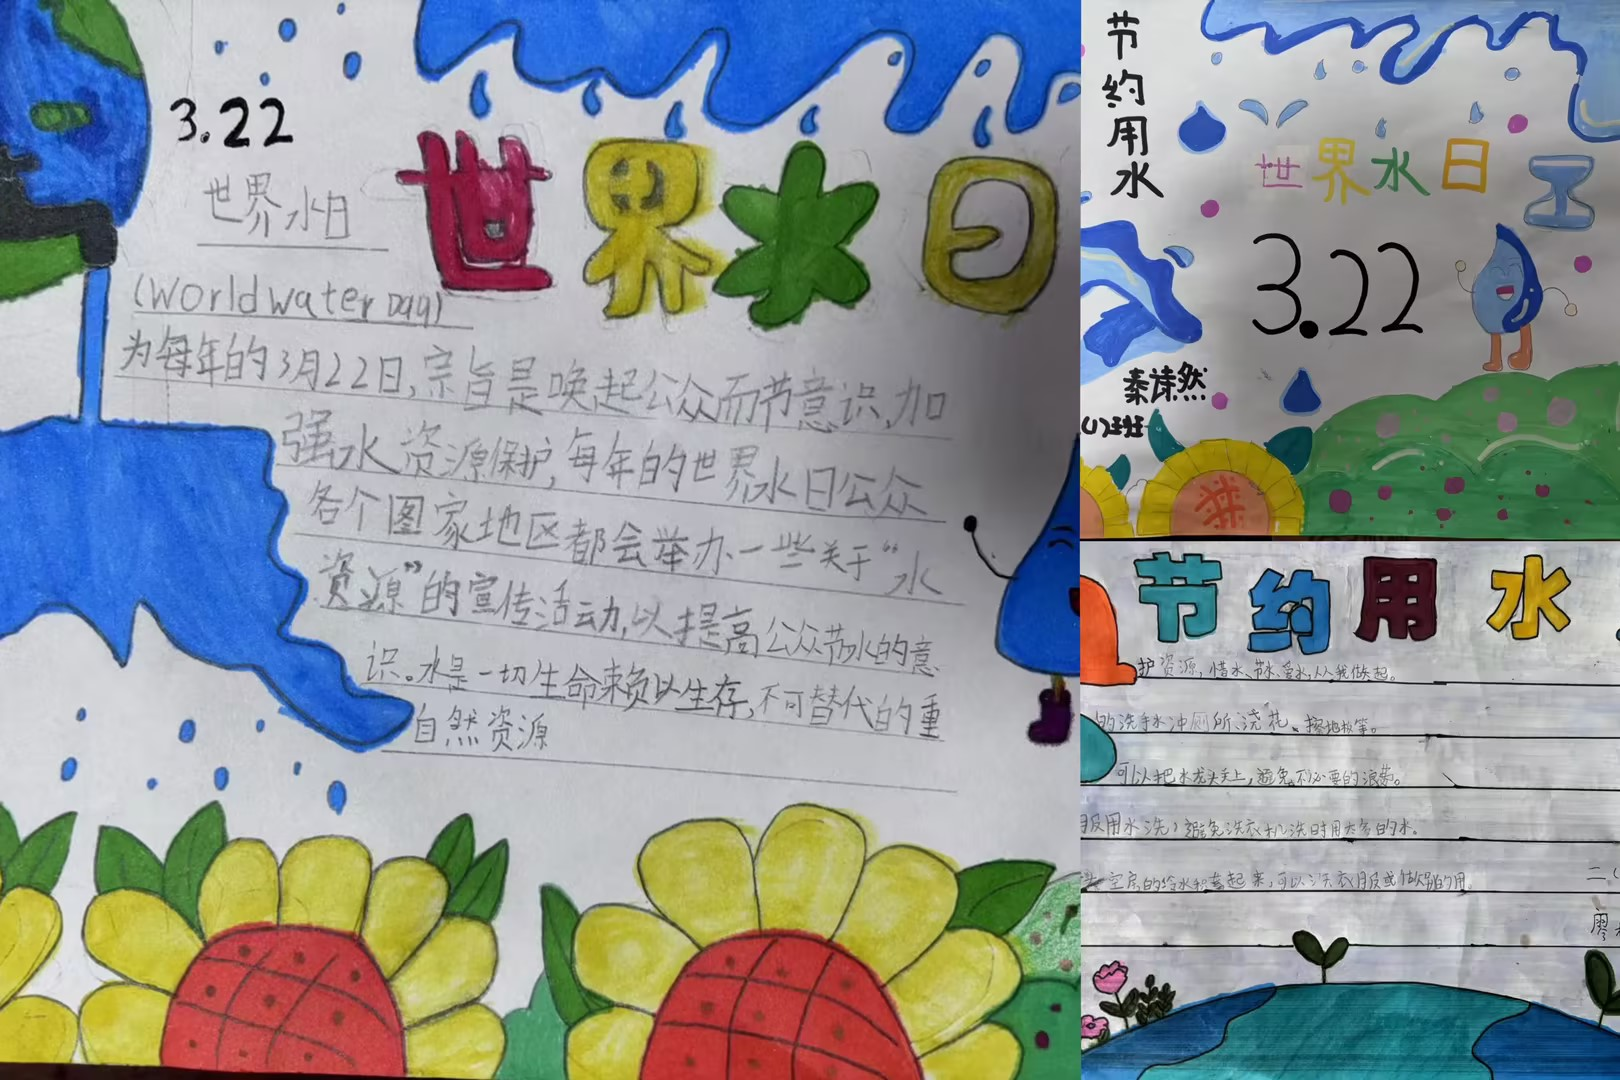 3.22
世界水日
世界水日
(World water Day)
为每年的3月22日,宗旨是唤起公众而节意识,加
强水资源保护,每年的世界水日公众
各个国家地区都会举办一些关于“水
资源”的宣传活动,以提高公众节水的意
识。水是一切生命赖以生存,不可替代的重
自然资源
节约用水
世界水日
3.22
秦诗然
(1)班
节约用水
护资源,惜水、节水、爱水,从我做起。
的洗手水冲厕所、浇花、擦地板等。
可以把水龙头关上,避免不必要的浪费。
用水洗,避免洗衣机洗时用太多的水。
二(
廖